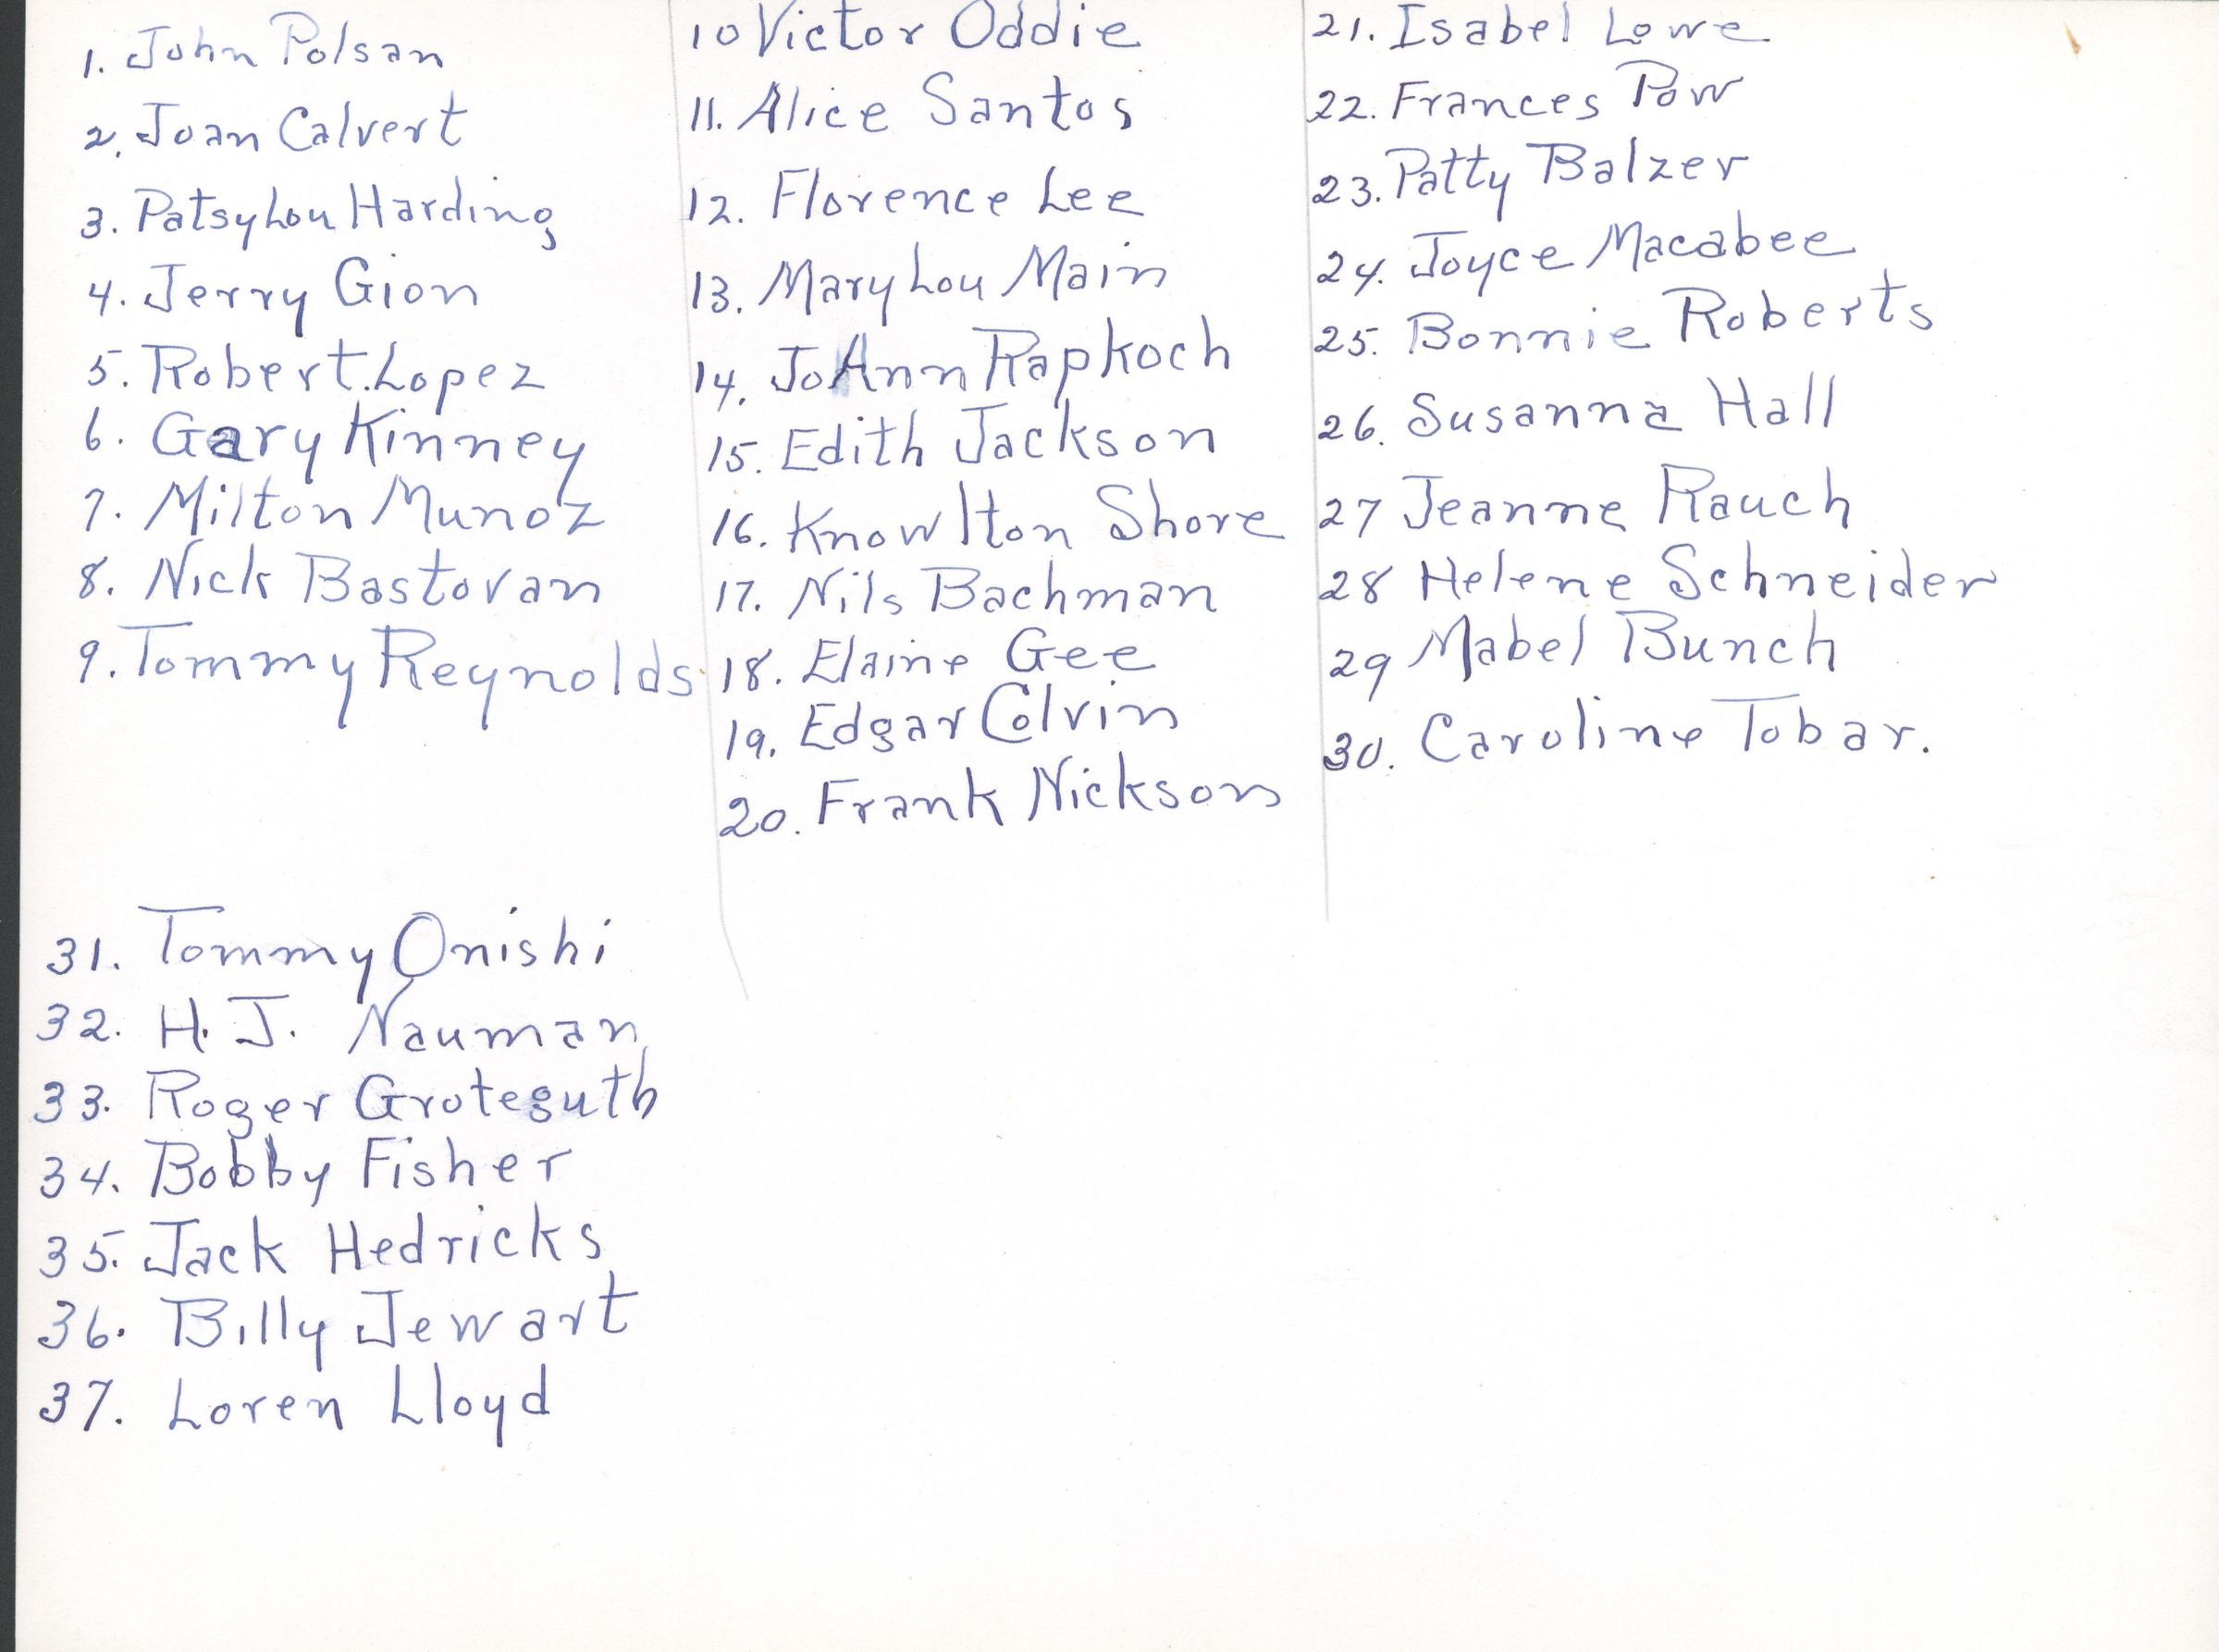 1. John Polsan
2. Joan Calvert
3. PatsyLou Harding
4. Jerry Gion
5. Robert Lopez
6. Gary Kinney
7. Milton Munoz
8. Nick Bastovan
9. Tommy Reynolds
10 Victor Oddie
11. Alice Santos
12. Florence Lee
13. MaryLou Main
14. JoAnn Rapkoch
15. Edith Jackson
16. Knowlton Shore
17. Nils Bachman
18. Elaine Gee
19. Edgar Colvin
20. Frank Nickson
21. Isabel Lowe
22. Frances Pow
23. Patty Balzer
24. Joyce Macabee
25. Bonnie Roberts
26. Susanna Hall
27 Jeanne Rauch
28 Helene Schneider
29 Mabel Bunch
30. Caroline Tobar.
31. Tommy Onishi
32. H. J. Nauman
33. Roger Groteguth
34. Bobby Fisher
35. Jack Hedricks
36. Billy Jewart
37. Loren Lloyd